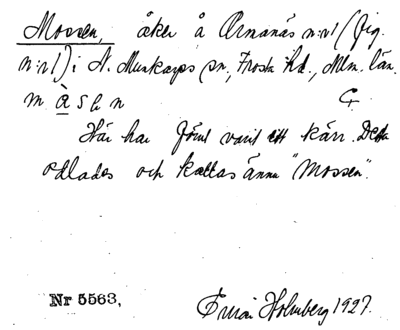 Mossen, åker å Arnanäs n:r 1 (fig.
n:r 1) i N. Munkarps sn, Frosta hd., Mlm. län.
m à s ε n G.
Här har förut varit ett kärr. Detta
odlades och kallas ännu "Mossen".
Nr 5563, Holmberg 1927.